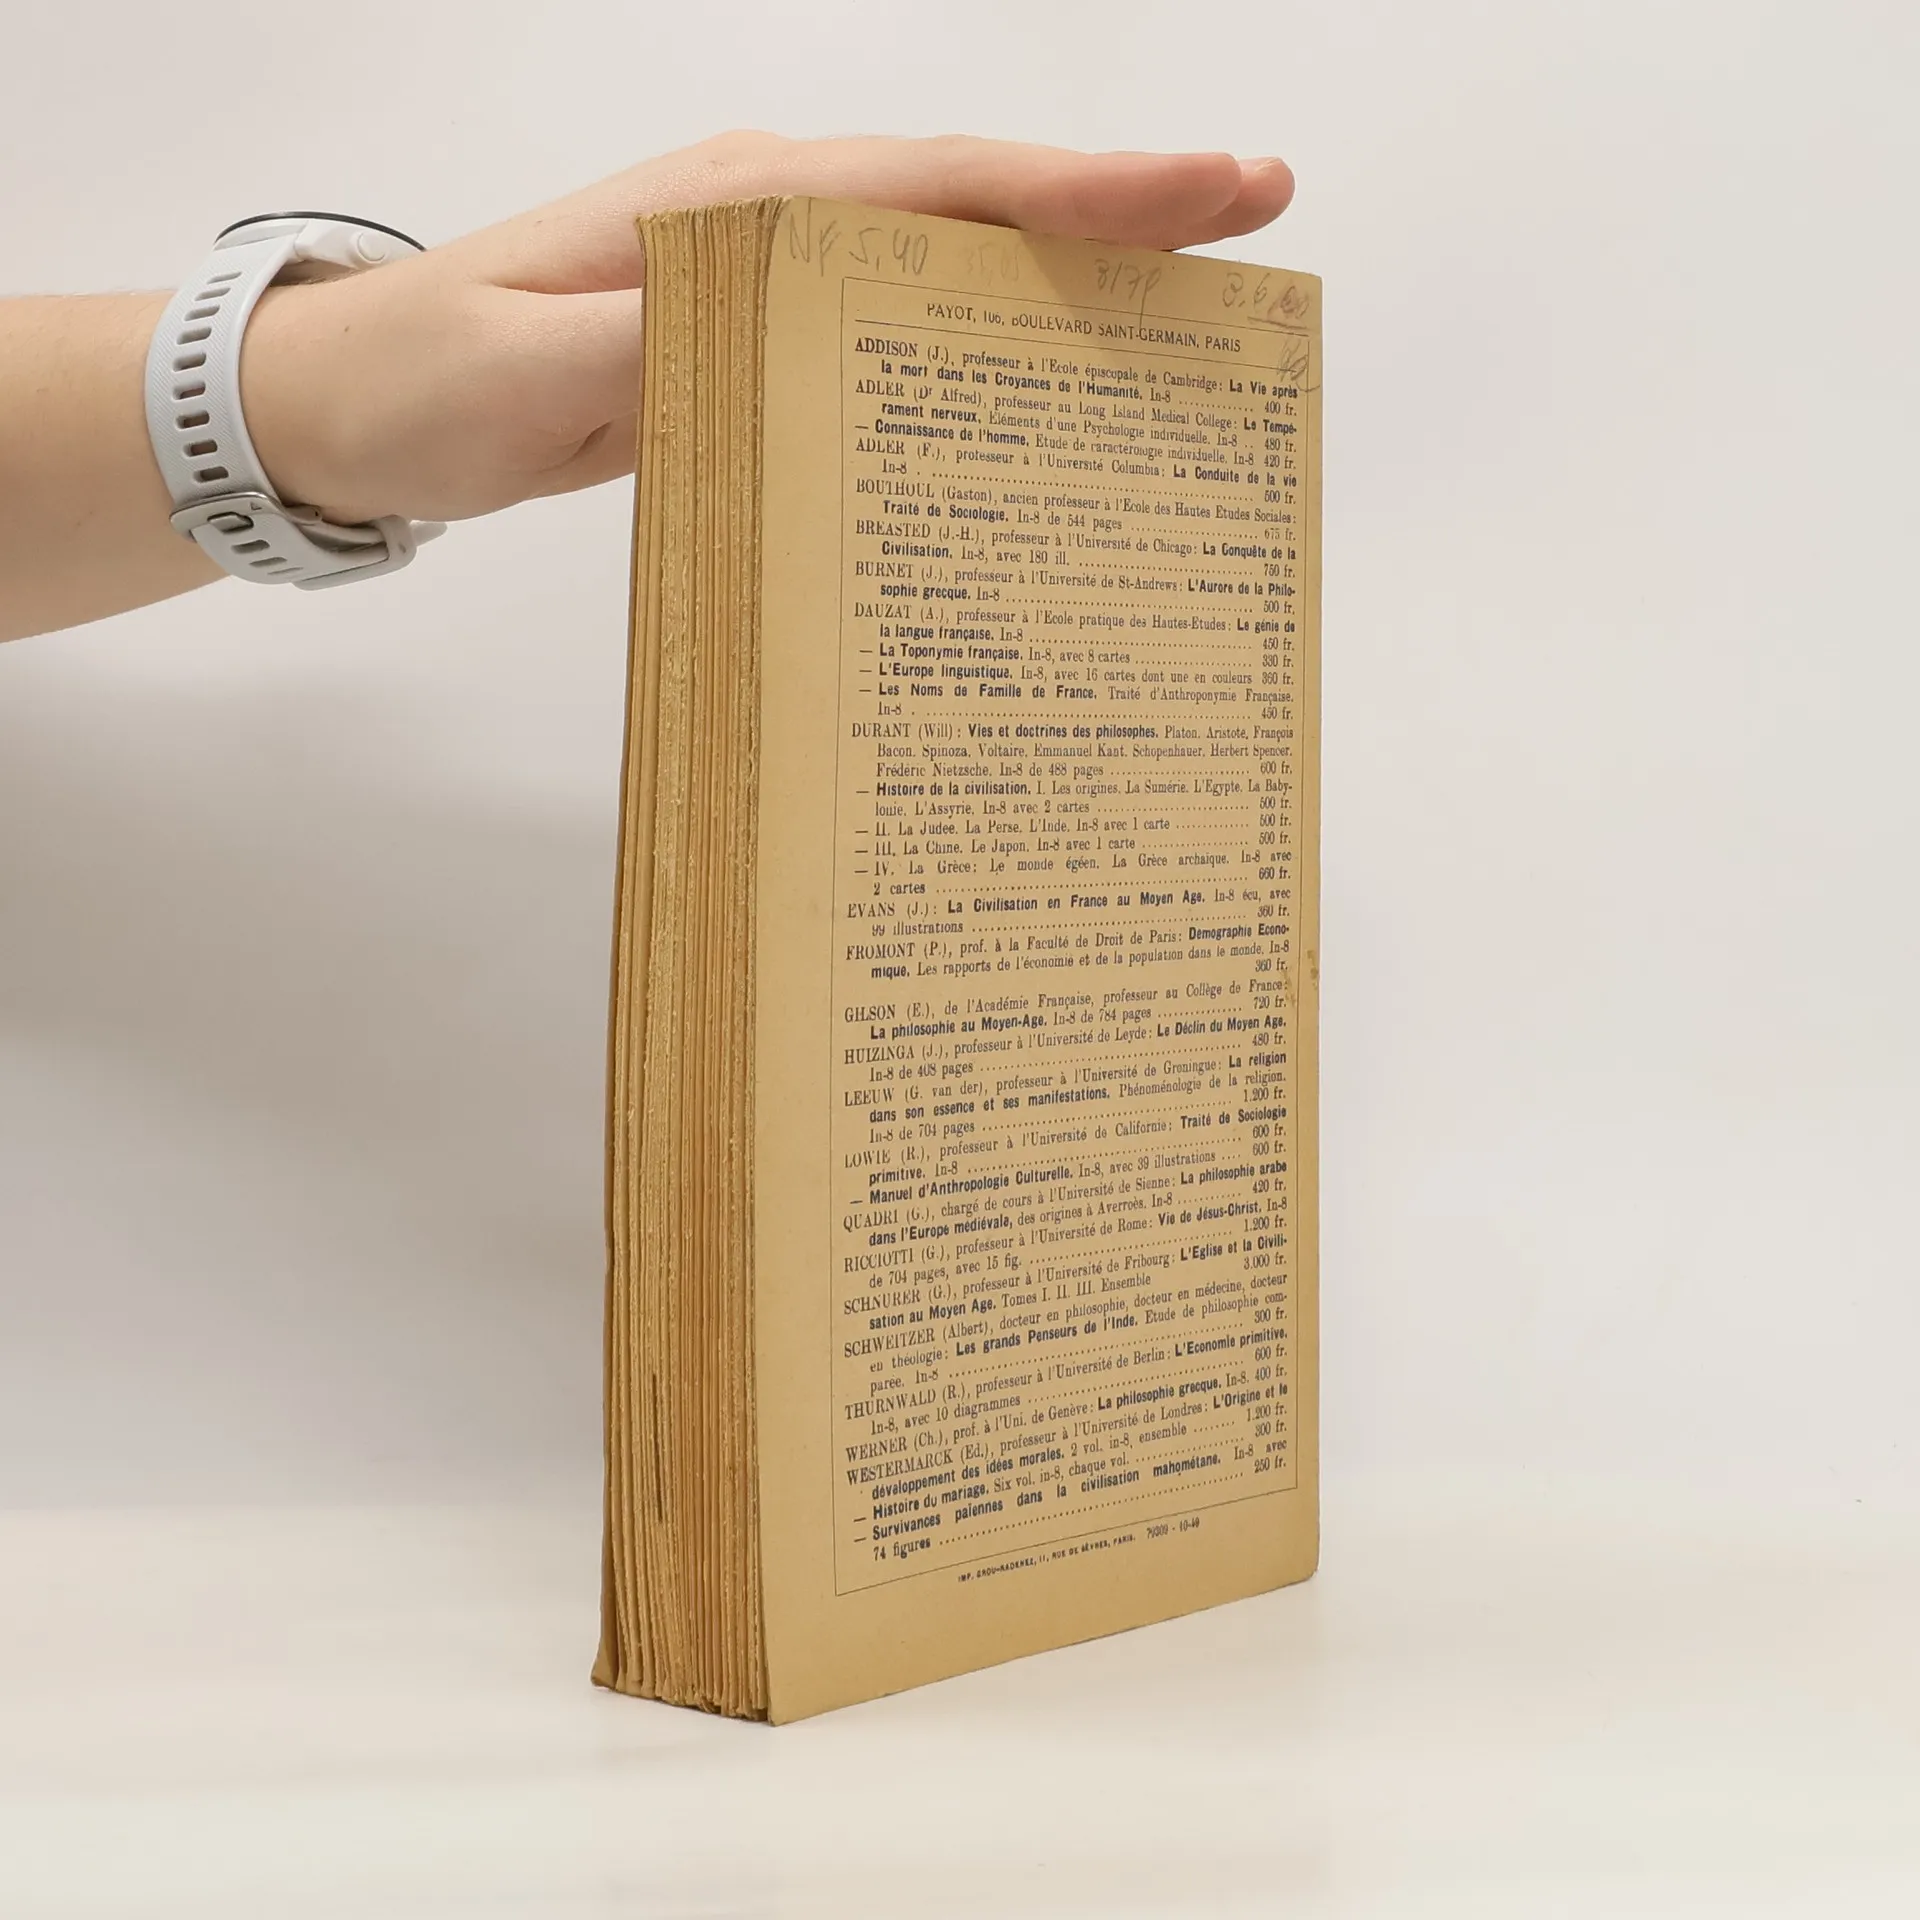 NF 5,40
3/79
3.6
PAYOT, 106, BOULEVARD SAINT-GERMAIN, PARIS
ADDISON (J.), professeur à l'Ecole épiscopale de Cambridge: La Vie après
la mort dans les Croyances de l'Humanité. In-8 ............. 400 fr.
ADLER (Dr Alfred), professeur au Long Island Medical College: Le Tempé-
rament nerveux. Eléments d'une Psychologie individuelle. In-8 .. 480 fr.
— Connaissance de l'homme. Etude de caractérologie individuelle. In-8 420 fr.
ADLER (F.), professeur à l'Université Columbia: La Conduite de la vie
In-8 . ............. 500 fr.
BOUTHOUL (Gaston), ancien professeur à l'Ecole des Hautes Etudes Sociales:
Traité de Sociologie. In-8 de 544 pages ............. 675 fr.
BREASTED (J.-H.), professeur à l'Université de Chicago: La Conquête de la
Civilisation. In-8, avec 180 ill. ............. 750 fr.
BURNET (J.), professeur à l'Université de St-Andrews: L'Aurore de la Philo-
sophie grecque. In-8 ............. 500 fr.
DAUZAT (A.), professeur à l'Ecole pratique des Hautes-Etudes: Le génie de
la langue française. In-8 ............. 450 fr.
— La Toponymie française. In-8, avec 8 cartes ............. 330 fr.
— L'Europe linguistique. In-8, avec 16 cartes dont une en couleurs 360 fr.
— Les Noms de Famille de France. Traité d'Anthroponymie Française.
In-8 . ............. 450 fr.
DURANT (Will): Vies et doctrines des philosophes. Platon. Aristote, François
Bacon. Spinoza. Voltaire. Emmanuel Kant. Schopenhauer. Herbert Spencer.
Frédéric Nietzsche. In-8 de 488 pages ............. 600 fr.
— Histoire de la civilisation. I. Les origines. La Sumérie. L'Egypte. La Baby-
lonie. L'Assyrie. In-8 avec 2 cartes ............. 500 fr.
— II. La Judée. La Perse. L'Inde. In-8 avec 1 carte ............. 500 fr.
— III. La Chine. Le Japon. In-8 avec 1 carte ............. 500 fr.
— IV. La Grèce: Le monde égéen. La Grèce archaïque. In-8 avec
2 cartes ............. 660 fr.
EVANS (J.): La Civilisation en France au Moyen Age. In-8 écu, avec
99 illustrations ............. 360 fr.
FROMONT (P.), prof. à la Faculté de Droit de Paris: Démographie Econo-
mique. Les rapports de l'économie et de la population dans le monde. In-8
360 fr.
GILSON (E.), de l'Académie Française, professeur au Collège de France:
La philosophie au Moyen-Age. In-8 de 784 pages ............. 720 fr.
HUIZINGA (J.), professeur à l'Université de Leyde: Le Déclin du Moyen Age.
In-8 de 408 pages ............. 480 fr.
LEEUW (G. van der), professeur à l'Université de Groningue: La religion
dans son essence et ses manifestations. Phénoménologie de la religion.
In-8 de 704 pages ............. 1.200 fr.
LOWIE (R.), professeur à l'Université de Californie: Traité de Sociologie
primitive. In-8 ............. 600 fr.
— Manuel d'Anthropologie Culturelle. In-8, avec 39 illustrations .... 600 fr.
QUADRI (G.), chargé de cours à l'Université de Sienne: La philosophie arabe
dans l'Europe médiévale, des origines à Averroès. In-8 ............. 420 fr.
RICCIOTTI (G.), professeur à l'Université de Rome: Vie de Jésus-Christ. In-8
de 704 pages, avec 15 fig. ............. 1.200 fr.
SCHNURER (G.), professeur à l'Université de Fribourg: L'Eglise et la Civili-
sation au Moyen Age. Tomes I. II. III. Ensemble 3.000 fr.
SCHWEITZER (Albert), docteur en philosophie, docteur en médecine, docteur
en théologie: Les grands Penseurs de l'Inde. Etude de philosophie com-
parée. In-8 ............. 300 fr.
THURNWALD (R.), professeur à l'Université de Berlin: L'Economie primitive.
In-8, avec 10 diagrammes ............. 600 fr.
WERNER (Ch.), prof. à l'Uni. de Genève: La philosophie grecque. In-8. 400 fr.
WESTERMARCK (Ed.), professeur à l'Université de Londres: L'Origine et le
développement des idées morales. 2 vol. in-8, ensemble ....... 1.200 fr.
— Histoire du mariage. Six vol. in-8, chaque vol. ............. 300 fr.
— Survivances païennes dans la civilisation mahométane. In-8 avec
74 figures ............. 250 fr.
IMP. GROU-RADENEZ, 11, RUE DE SÈVRES, PARIS. 79309 - 10-49